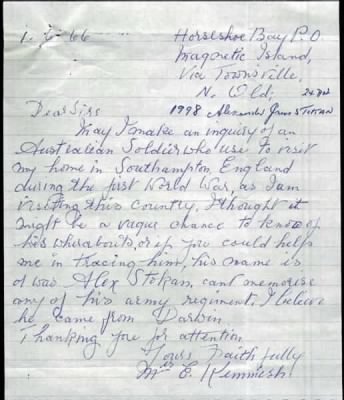 1.6.66 Horseshoe Bay P.O.
Magnetic Island,
Via Townsville,
N. Qld,
Dear Sirs 1998 Alexander
May I make an inquiry of an
Australian Soldier who use to visit
my home in Southampton, England
during the first World War, as I am
visiting this country, I thought it
might be a vague chance to know of
his wherabouts, or if you could help
me in tracing him, his name is
or was Alex Stokan, cant memorise
any of his army regiment, I believe
he came from Darwin
Thanking you for attention
Yours Faithfully
Mrs E. Kemmish